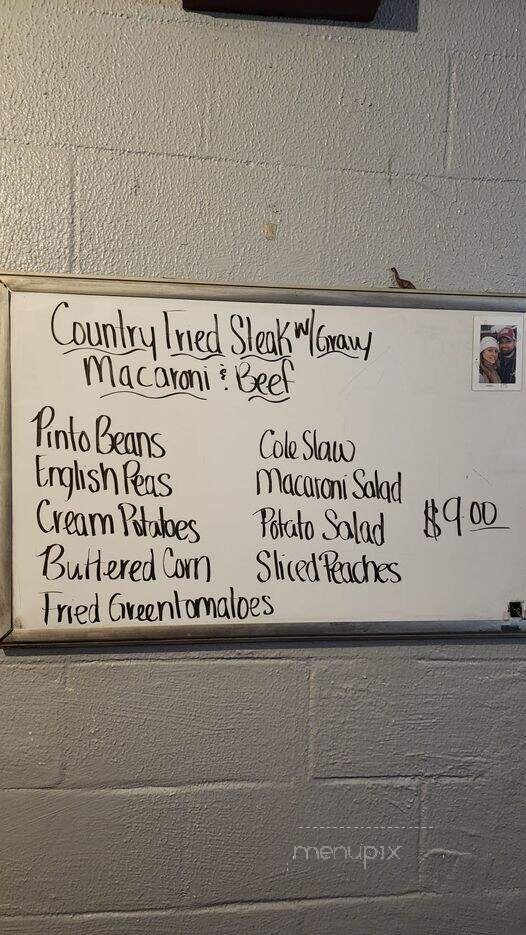 Country Fried Steak w/Gravy
Macaroni & Beef
Pinto Beans
English Peas
Cream Potatoes
Buttered Corn
Fried Greentomatoes
Cole Slaw
Macaroni Salad
Potato Salad
Sliced Peaches
$9.00
menupix